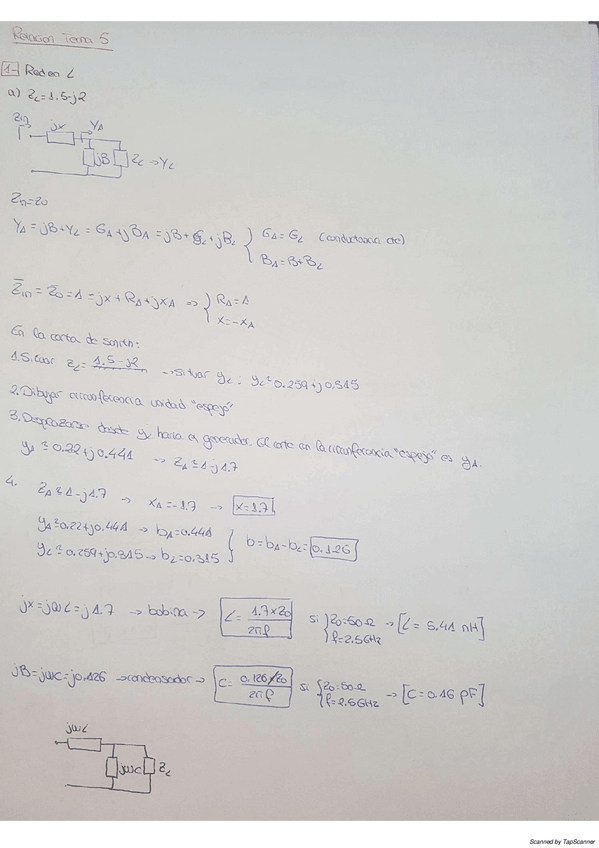 Relación Tema 5
1- Red en L
a) Z_L = 1.5-j2
Zin jx Y_A
jB Z_L → Y_L
Zin = Z0
Y_A = jB + Y_L = G_A + jB_A = jB + G_L + jB_L { G_A = G_L (conductancia cte)
B_A = B + B_L
Z̄in = Z̄0 = 1 = jx + R_A + jx_A ⇒ { R_A = 1
x = -x_A
En la carta de smith:
1. Situar z_L = 1.5-j2 → situar y_L : y_L ≈ 0.259 + j0.315
2. Dibujar circunferencia unidad "espejo"
3. Desplazarse desde y_L hacia el generador. El corte en la circunferencia "espejo" es y_A.
y_A ≈ 0.22 + j0.441 → z_A ≈ 1-j1.7
4. z_A ≈ 1-j1.7 → x_A = -1.7 → x = 1.7
y_A ≈ 0.22 + j0.441 → b_A = 0.441
y_L ≈ 0.259 + j0.315 → b_L = 0.315 } b = b_A - b_L = 0.126
jx = jωL = j1.7 → bobina → L = 1.7×Z0 / 2πf si { Z0 = 50Ω f = 2.5GHz → [L = 5.41 nH]
jB = jωC = j0.126 → condensador → C = 0.126/Z0 / 2πf si { Z0 = 50Ω f = 2.5GHz → [C = 0.16 pF]
jωL
jωC Z_L
Scanned by TapScanner